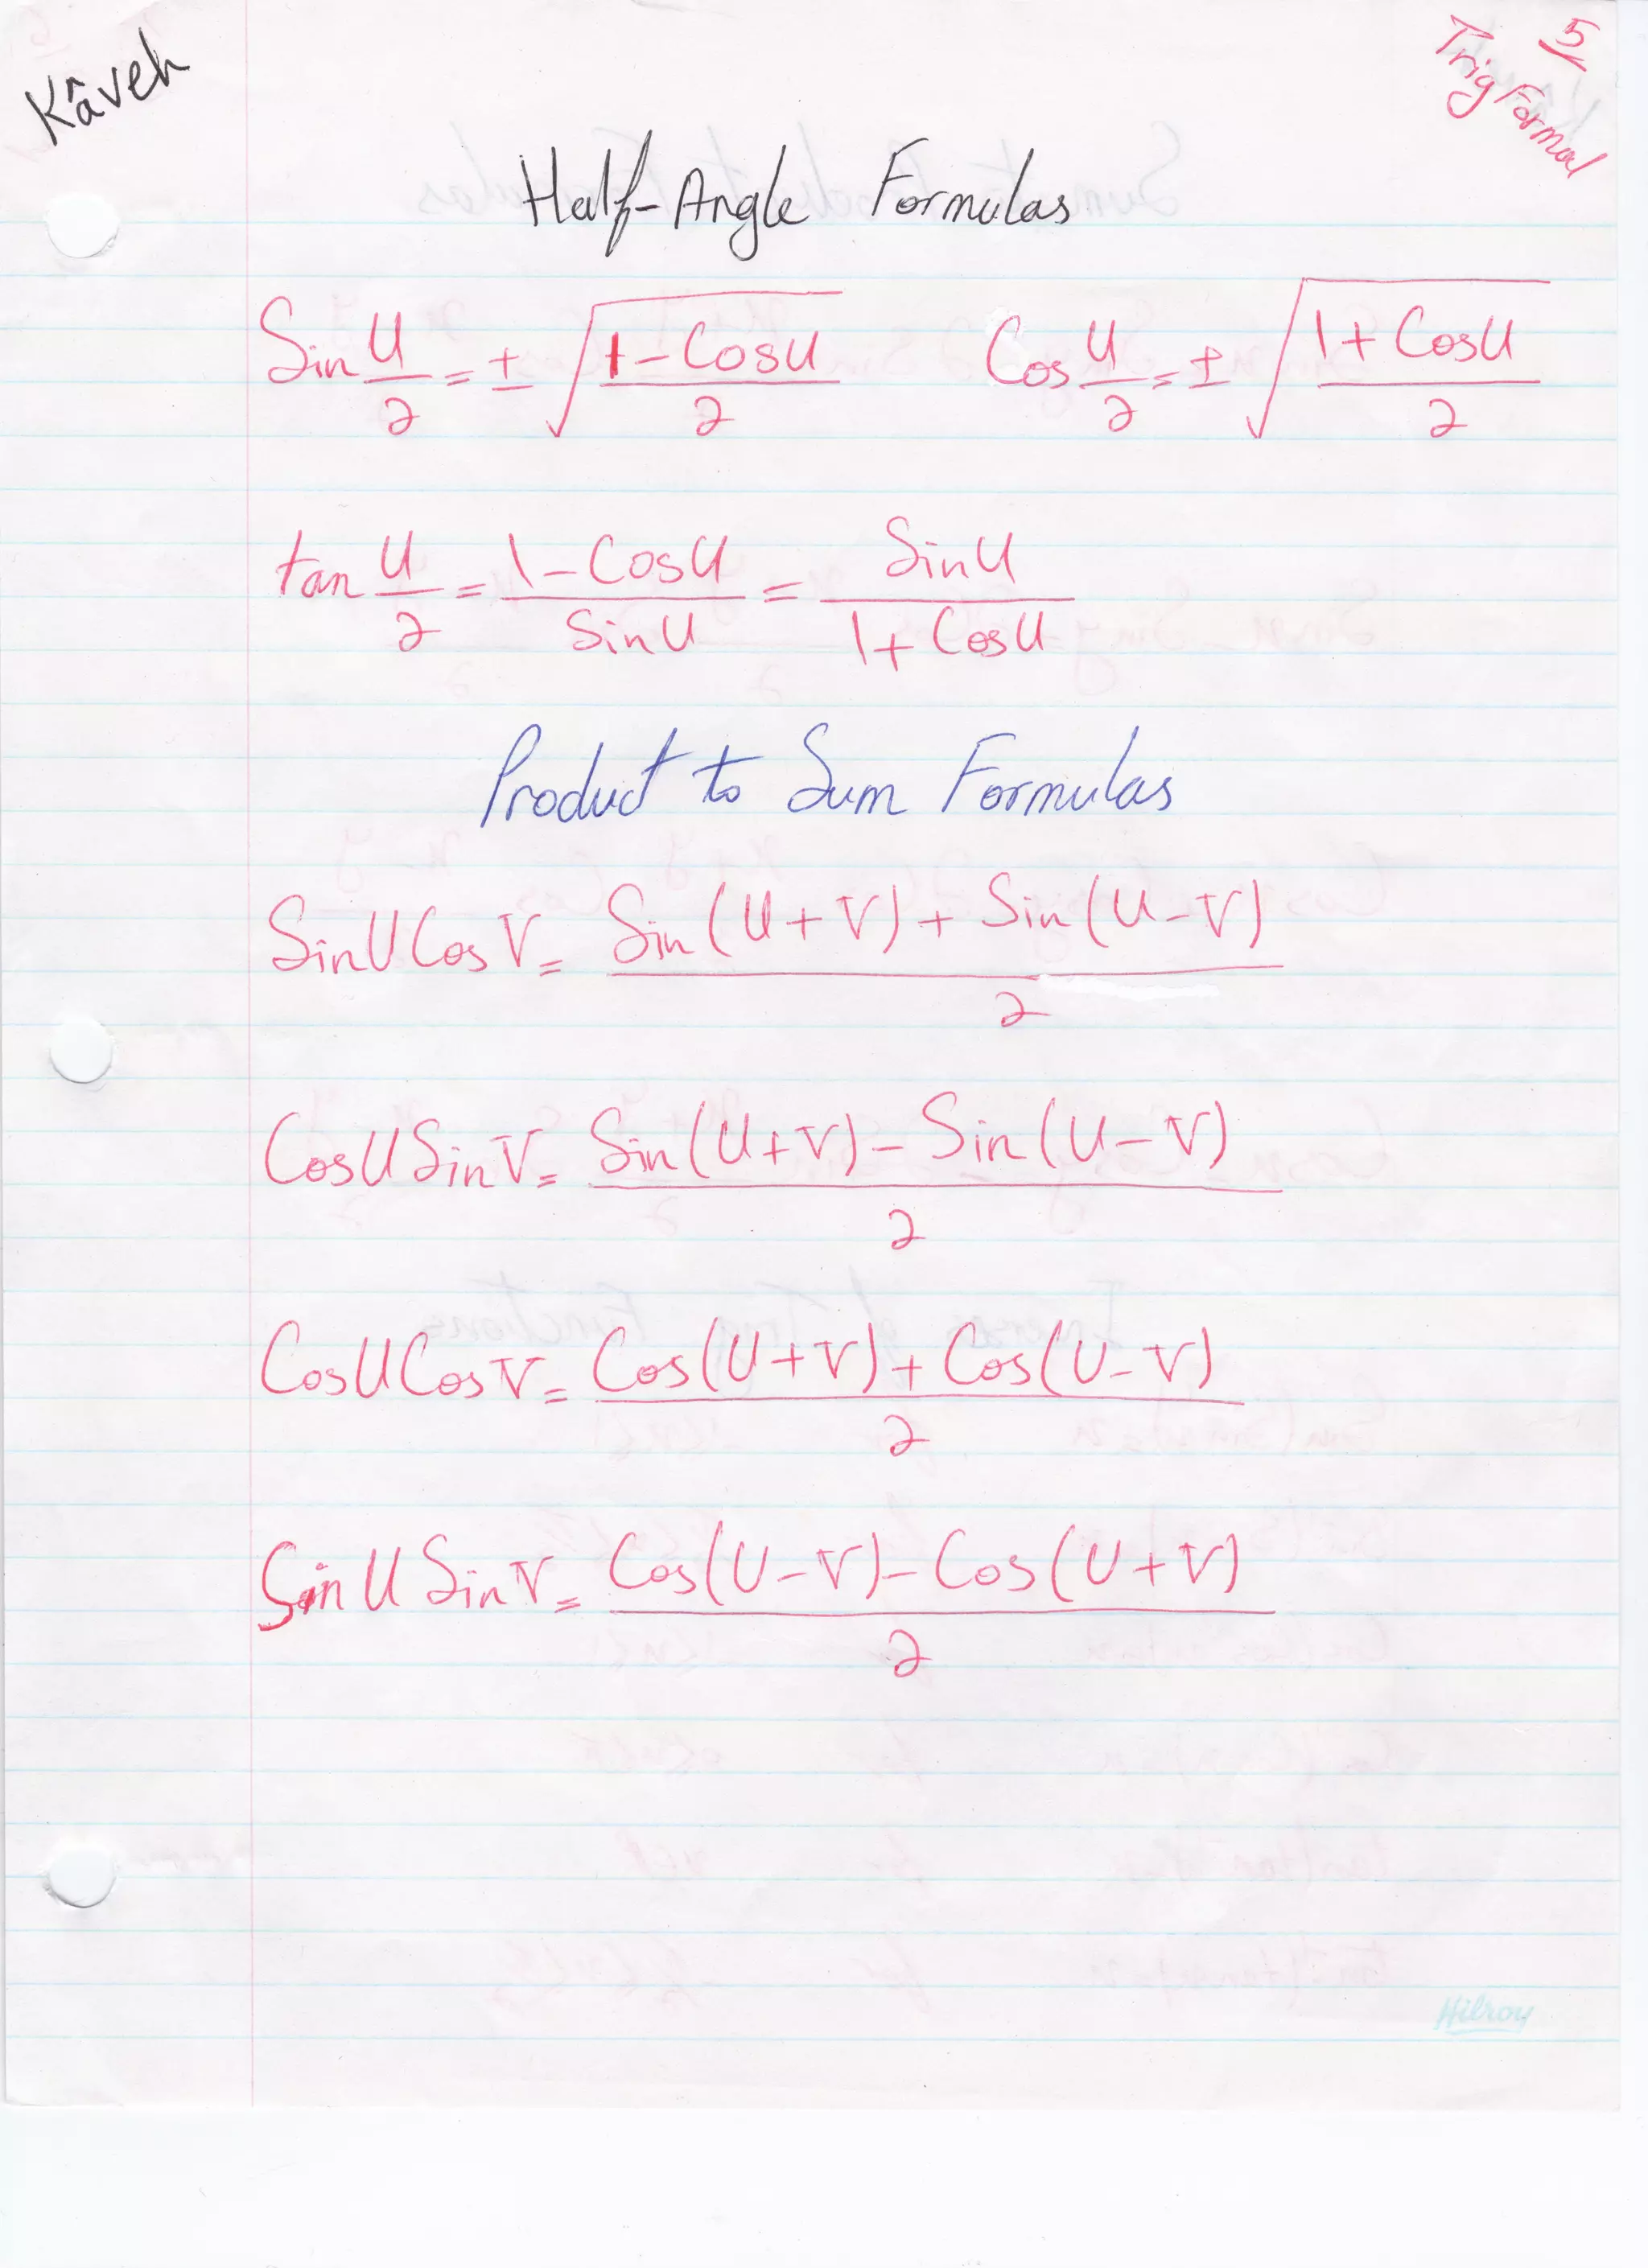 Kâveh
5
Trig Formul
Half-Angle Formulas
Sin U/2 = ± √((1 - Cos U)/2)   Cos U/2 = ± √((1 + Cos U)/2)
tan U/2 = (1 - Cos U)/(Sin U) = (Sin U)/(1 + Cos U)
Product to Sum Formulas
Sin U Cos V = (Sin(U + V) + Sin(U - V))/2
Cos U Sin V = (Sin(U + V) - Sin(U - V))/2
Cos U Cos V = (Cos(U + V) + Cos(U - V))/2
Sin U Sin V = (Cos(U - V) - Cos(U + V))/2
Hilroy